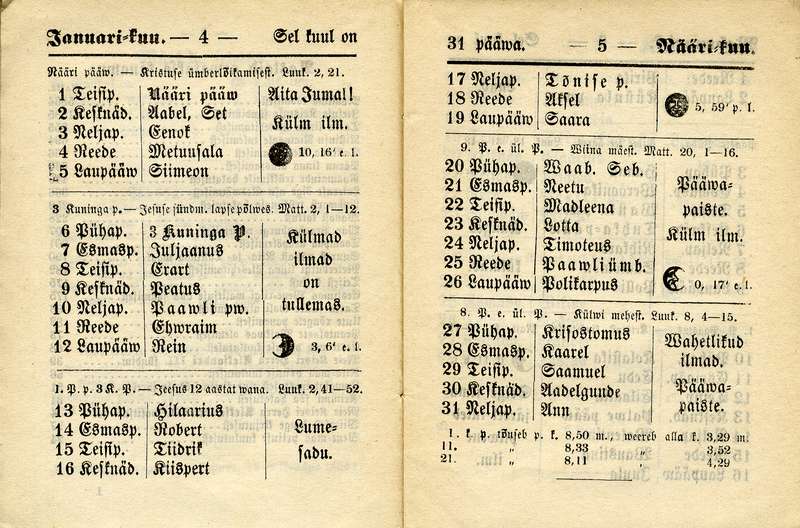 Januari-kuu. — 4 — Sel kuul on
Nääri pääw. — Kristuse ümberlõikamisest. Luuk. 2, 21.
1 Teisip. Nääri pääw Aita Jumal!
2 Kesknäd. Aabel, Set
3 Neljap. Eenok Külm ilm.
4 Reede Metuusala 10, 16' e. l.
5 Laupääw Siimeon
3 Kuninga p. — Jesuse sündm. lapsepõlwes. Matt. 2, 1—12.
6 Pühap. 3 Kuninga P. Külmad
7 Esmasp. Juljaanus ilmad
8 Teisip. Erart
9 Kesknäd. Peatus on
10 Neljap. Paawli pw. tullemas.
11 Reede Ehwraim
12 Laupääw Rein 3, 6' e. l.
1. P. p. 3 K. P. — Jeesus 12 aastat wana. Luuk. 2, 41—52.
13 Pühap. Hilaarius
14 Esmasp. Robert Lume-
15 Teisip. Tiidrik sadu.
16 Kesknäd. Kiispert
31 pääwa. — 5 — Nääri-kuu.
17 Neljap. Tõnise p.
18 Reede Aksel 5, 59' p. l.
19 Laupääw Saara
9. P. e. ül. P. — Wiina mäest. Matt. 20, 1—16.
20 Pühap. Waab. Seb.
21 Esmasp. Neetu Pääwa-
22 Teisip. Madleena paiste.
23 Kesknäd. Lotta
24 Neljap. Timoteus Külm ilm.
25 Reede Paawli ümb.
26 Laupääw Polikarpus 0, 17' e. l.
8. P. e. ül. P. — Külwi mehest. Luuk. 8, 4—15.
27 Pühap. Krisostomus Wahetlikud
28 Esmasp. Kaarel ilmad.
29 Teisip. Saamuel
30 Kesknäd. Aadelgunde Pääwa-
31 Neljap. Ann paiste.
1. k p. tõuseb p. k. 8,50 m., weereb alla k. 3,29 m.
11. „ 8,33 „ 3,52
21. „ 8,11 „ 4,29